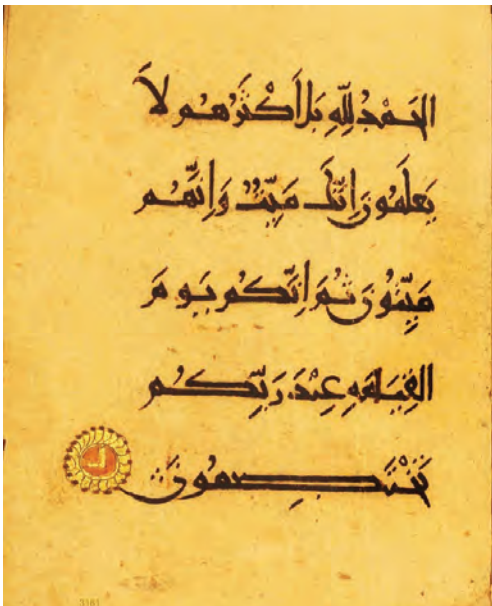 الحَمْدُ لِلّهِ بَل اَكْثَرُهُم لَا
يَعلَمُونَ اِنَّكَ مَيِّتٌ وَاِنَّهُم
مَيِّتُونَ ثُمَ اِنَّكُم يَومَ
القِيَامَةِ عِنْدَ رَبِّكُم
تَخْتَصِمُونَ
3161